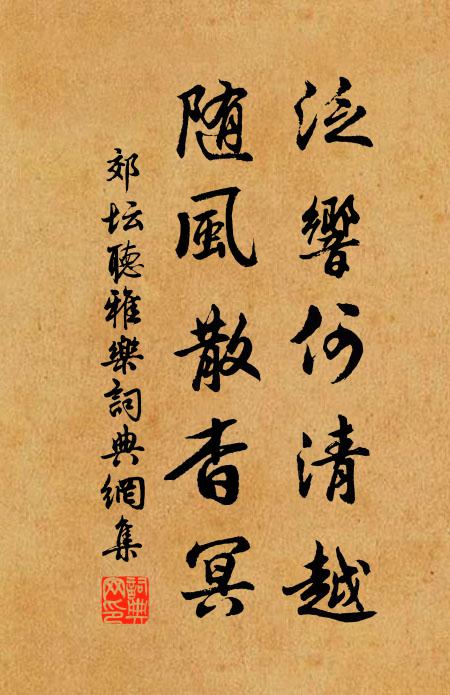 泛響何清越
随風散杳冥
郊坛聽雅樂詞典網集
詞典网印